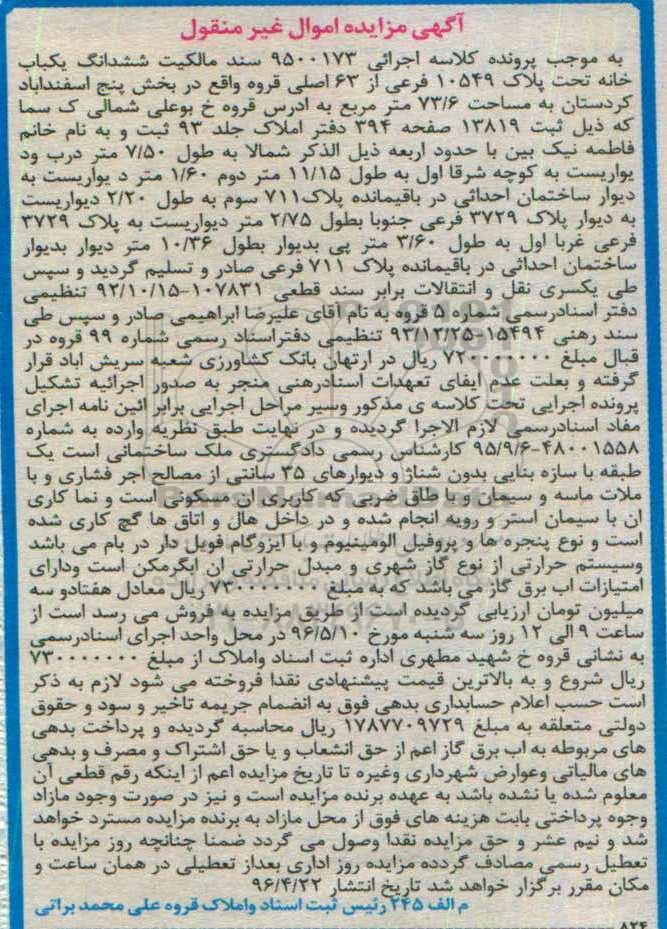 آگهی مزایده اموال غیر منقول
به موجب پرونده کلاسه اجرائی ۹۵۰۰۱۷۳ سند مالکیت ششدانگ یکباب
خانه تحت پلاک ۱۰۵۴۹ فرعی از ۶۳ اصلی قروه واقع در بخش پنج اسفنداباد
کردستان به مساحت ۷۳/۶ متر مربع به ادرس قروه خ بوعلی شمالی ک سما
که ذیل ثبت ۱۳۸۱۹ صفحه ۳۹۴ دفتر املاک جلد ۹۳ ثبت و به نام خانم
فاطمه نیک بین با حدود اربعه ذیل الذکر شمالا به طول ۷/۵۰ متر درب ود
یواریست به کوچه شرقا اول به طول ۱۱/۱۵ متر دوم ۱/۶۰ متر د یواریست به
دیوار ساختمان احداثی در باقیمانده پلاک۷۱۱ سوم به طول ۲/۲۰ دیواریست
به دیوار پلاک ۳۷۲۹ فرعی جنوبا بطول ۲/۷۵ متر دیواریست به پلاک ۳۷۲۹
فرعی غربا اول به طول ۳/۶۰ متر پی بدیوار بطول ۱۰/۳۶ متر دیوار بدیوار
ساختمان احداثی در باقیمانده پلاک ۷۱۱ فرعی صادر و تسلیم گردید و سپس
طی یکسری نقل و انتقالات برابر سند قطعی ۱۰۷۸۳۱-۹۲/۱۰/۱۵ تنظیمی
دفتر اسنادرسمی شماره ۵ قروه به نام آقای علیرضا ابراهیمی صادر و سپس طی
سند رهنی ۱۵۴۹۴-۹۳/۱۲/۲۵ تنظیمی دفتراسناد رسمی شماره ۹۹ قروه در
قبال مبلغ ۷۲۰۰۰۰۰۰۰ ریال در ارتهان بانک کشاورزی شعبه سریش اباد قرار
گرفته و بعلت عدم ایفای تعهدات اسنادرهنی منجر به صدور اجرائیه تشکیل
پرونده اجرایی تحت کلاسه ی مذکور وسیر مراحل اجرایی برابر ائین نامه اجرای
مفاد اسنادرسمی لازم الاجرا گردیده و در نهایت طبق نظریه وارده به شماره
۴۸۰۰۱۵۵۸-۹۵/۹/۶ کارشناس رسمی دادگستری ملک ساختمانی است یک
طبقه با سازه بنایی بدون شناژ و دیوارهای ۳۵ سانتی از مصالح اجر فشاری و با
ملات ماسه و سیمان و با طاق ضربی که کاربری ان مسکونی است و نما کاری
ان با سیمان استر و رویه انجام شده و در داخل هال و اتاق ها گچ کاری شده
است و نوع پنجره ها و پروفیل الومینیوم و با ایزوگام فویل دار در بام می باشد
وسیستم حرارتی از نوع گاز شهری و مبدل حرارتی ان ابگرمکن است ودارای
امتیازات اب برق گاز می باشد که به مبلغ ۷۳۰۰۰۰۰۰۰ ریال معادل هفتادو سه
میلیون تومان ارزیابی گردیده است از طریق مزایده به فروش می رسد است از
ساعت ۹ الی ۱۲ روز سه شنبه مورخ ۹۶/۵/۱۰ در محل واحد اجرای اسنادرسمی
به نشانی قروه خ شهید مطهری اداره ثبت اسناد واملاک از مبلغ ۷۳۰۰۰۰۰۰۰
ریال شروع و به بالاترین قیمت پیشنهادی نقدا فروخته می شود لازم به ذکر
است حسب اعلام حسابداری بدهی فوق به انضمام جریمه تاخیر و سود و حقوق
دولتی متعلقه به مبلغ ۱۷۸۷۷۰۹۷۲۹ ریال محاسبه گردیده و پرداخت بدهی
های مربوطه به اب برق گاز اعم از حق انشعاب و یا حق اشتراک و مصرف و بدهی
های مالیاتی وعوارض شهرداری وغیره تا تاریخ مزایده اعم از اینکه رقم قطعی آن
معلوم شده یا نشده باشد به عهده برنده مزایده است و نیز در صورت وجود مازاد
وجوه پرداختی بابت هزینه های فوق از محل مازاد به برنده مزایده مسترد خواهد
شد و نیم عشر و حق مزایده نقدا وصول می گردد ضمنا چنانچه روز مزایده با
تعطیل رسمی مصادف گردده مزایده روز اداری بعداز تعطیلی در همان ساعت و
مکان مقرر برگزار خواهد شد تاریخ انتشار ۹۶/۴/۲۲
م الف ۲۴۵ رئیس ثبت اسناد واملاک قروه علی محمد براتی
۸۲۴